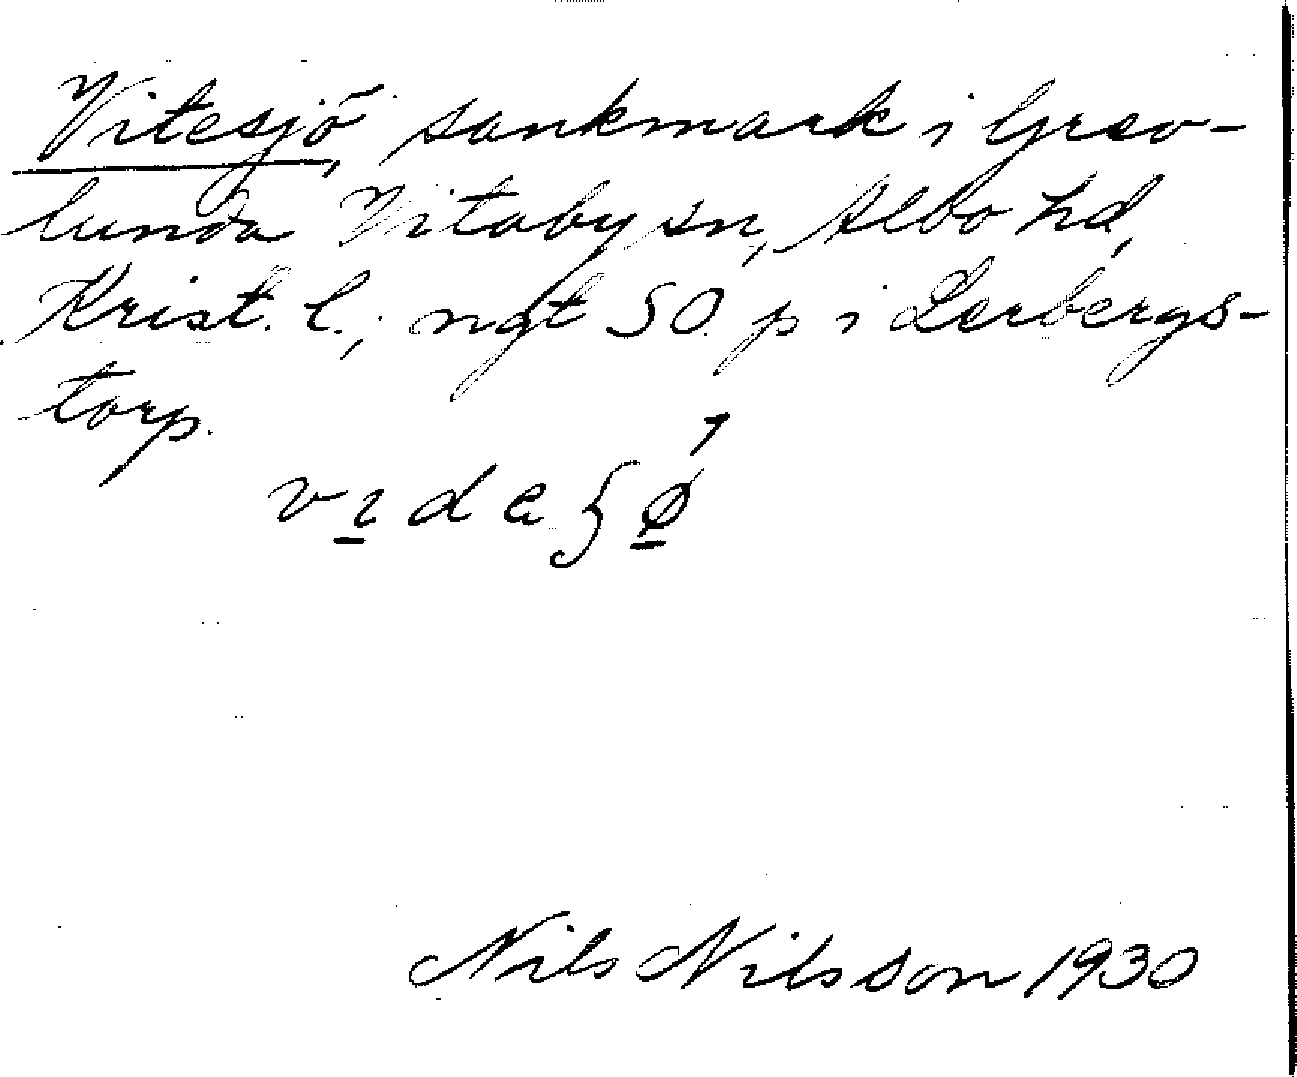 Vitesjö, sankmark i Grev-
lunda Vitaby sn, Albo hd,
Krist. l.; ngt SO. p i Lerbergs-
torp.
Nils Nilsson 1930